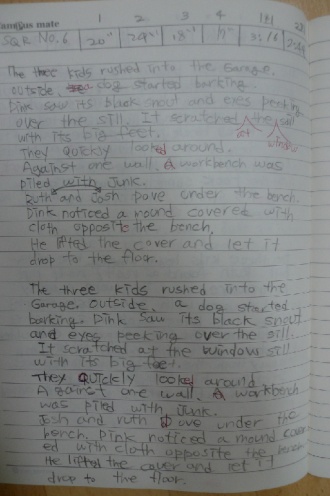 Famous mate
1 2 3 4
SQR NO. 6 20" 18" 3:18
The three kids rushed into the Garage.
outside, dog started barking.
Dink saw its black snout and eyes peeking
over the sill. It scratched the sill
at window
with its big feet.
They Quickly looked around.
Against one wall, a workbench was
piled with junk.
Ruth and Josh Dove under the bench.
Dink noticed a mound covered with
cloth opposite the bench,
He lifted the cover and let it
drop to the floor.
The three kids rushed into the
Garage. Outside, a dog started
barking. Dink saw its black snout
and eyes peeking over the sill.
It scratched at the windows sill
with its big feet.
They Quickly looked around
A gainst one wall, a workbench
was piled with junk.
Josh and ruth Dove under the
bench. Dink noticed a mound cover
ed with cloth opposite the bench
He lifted the cover and let it
drop to the floor.